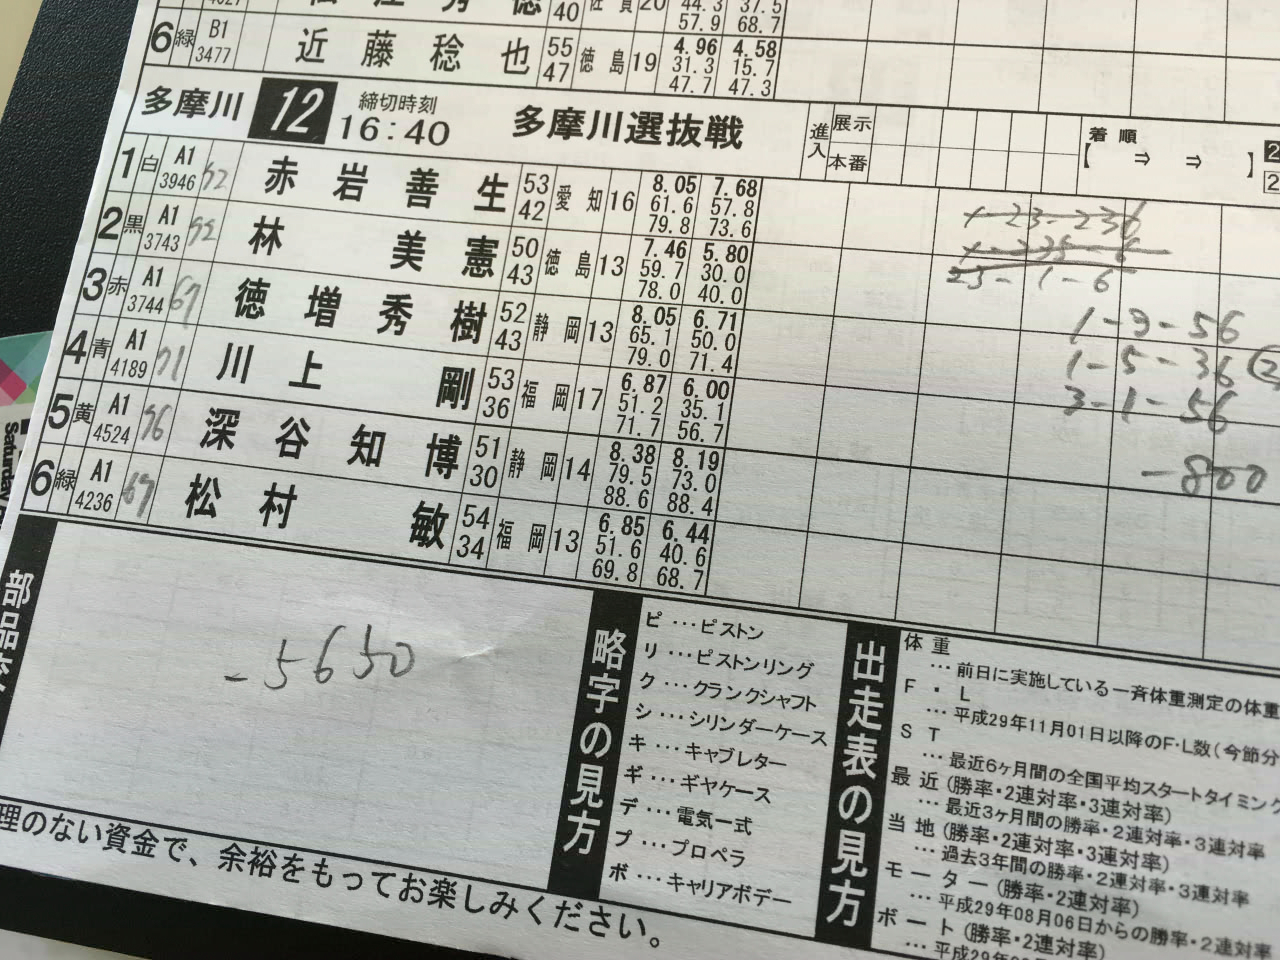 40 佐賀 20 44.3 37.5
57.9 68.7
6 緑 B1 3477 近藤稔也 55 47 徳島 19 4.96 4.58
31.3 15.7
47.7 47.3
多摩川 12 締切時刻 16:40 多摩川選抜戦 進入 展示 本番 着順 【 ⇒ ⇒ 】
1 白 A1 3946 52 赤岩善生 53 42 愛知 16 8.05 7.68
61.6 57.8
79.8 73.6
2 黒 A1 3743 林美憲 50 43 徳島 13 7.46 5.80
59.7 30.0
78.0 40.0
3 赤 A1 3744 67 徳増秀樹 52 43 静岡 13 8.05 6.71
65.1 50.0
79.0 71.4
4 青 A1 4189 71 川上剛 53 36 福岡 17 6.87 6.00
51.2 35.1
71.7 56.7
5 黄 A1 4524 56 深谷知博 51 30 静岡 14 8.38 8.19
79.5 73.0
88.6 88.4
6 緑 A1 4236 67 松村敏 54 34 福岡 13 6.85 6.44
51.6 40.6
69.8 68.7
1-23-236
1-235-6
23-1-6
1-3-56
1-5-36 ②
3-1-56
-800
-5650
略字の見方
ピ…ピストン
リ…ピストンリング
ク…クランクシャフト
シ…シリンダーケース
キ…キャブレター
ギ…ギヤケース
デ…電気一式
プ…プロペラ
ボ…キャリアボデー
出走表の見方
体重
…前日に実施している一斉体重測定の体重
F・L
…平成29年11月01日以降のF・L数(今節分
ST
…最近6ヶ月間の全国平均スタートタイミング
最近(勝率・2連対率・3連対率)
…最近3ヶ月間の勝率・2連対率・3連対率
当地(勝率・2連対率・3連対率)
…過去3年間の勝率・2連対率・3連対率
モーター(勝率・2連対率)
…平成29年08月06日からの勝率・2連対率
ボート(勝率・2連対率)
理のない資金で、余裕をもってお楽しみください。
Saturday